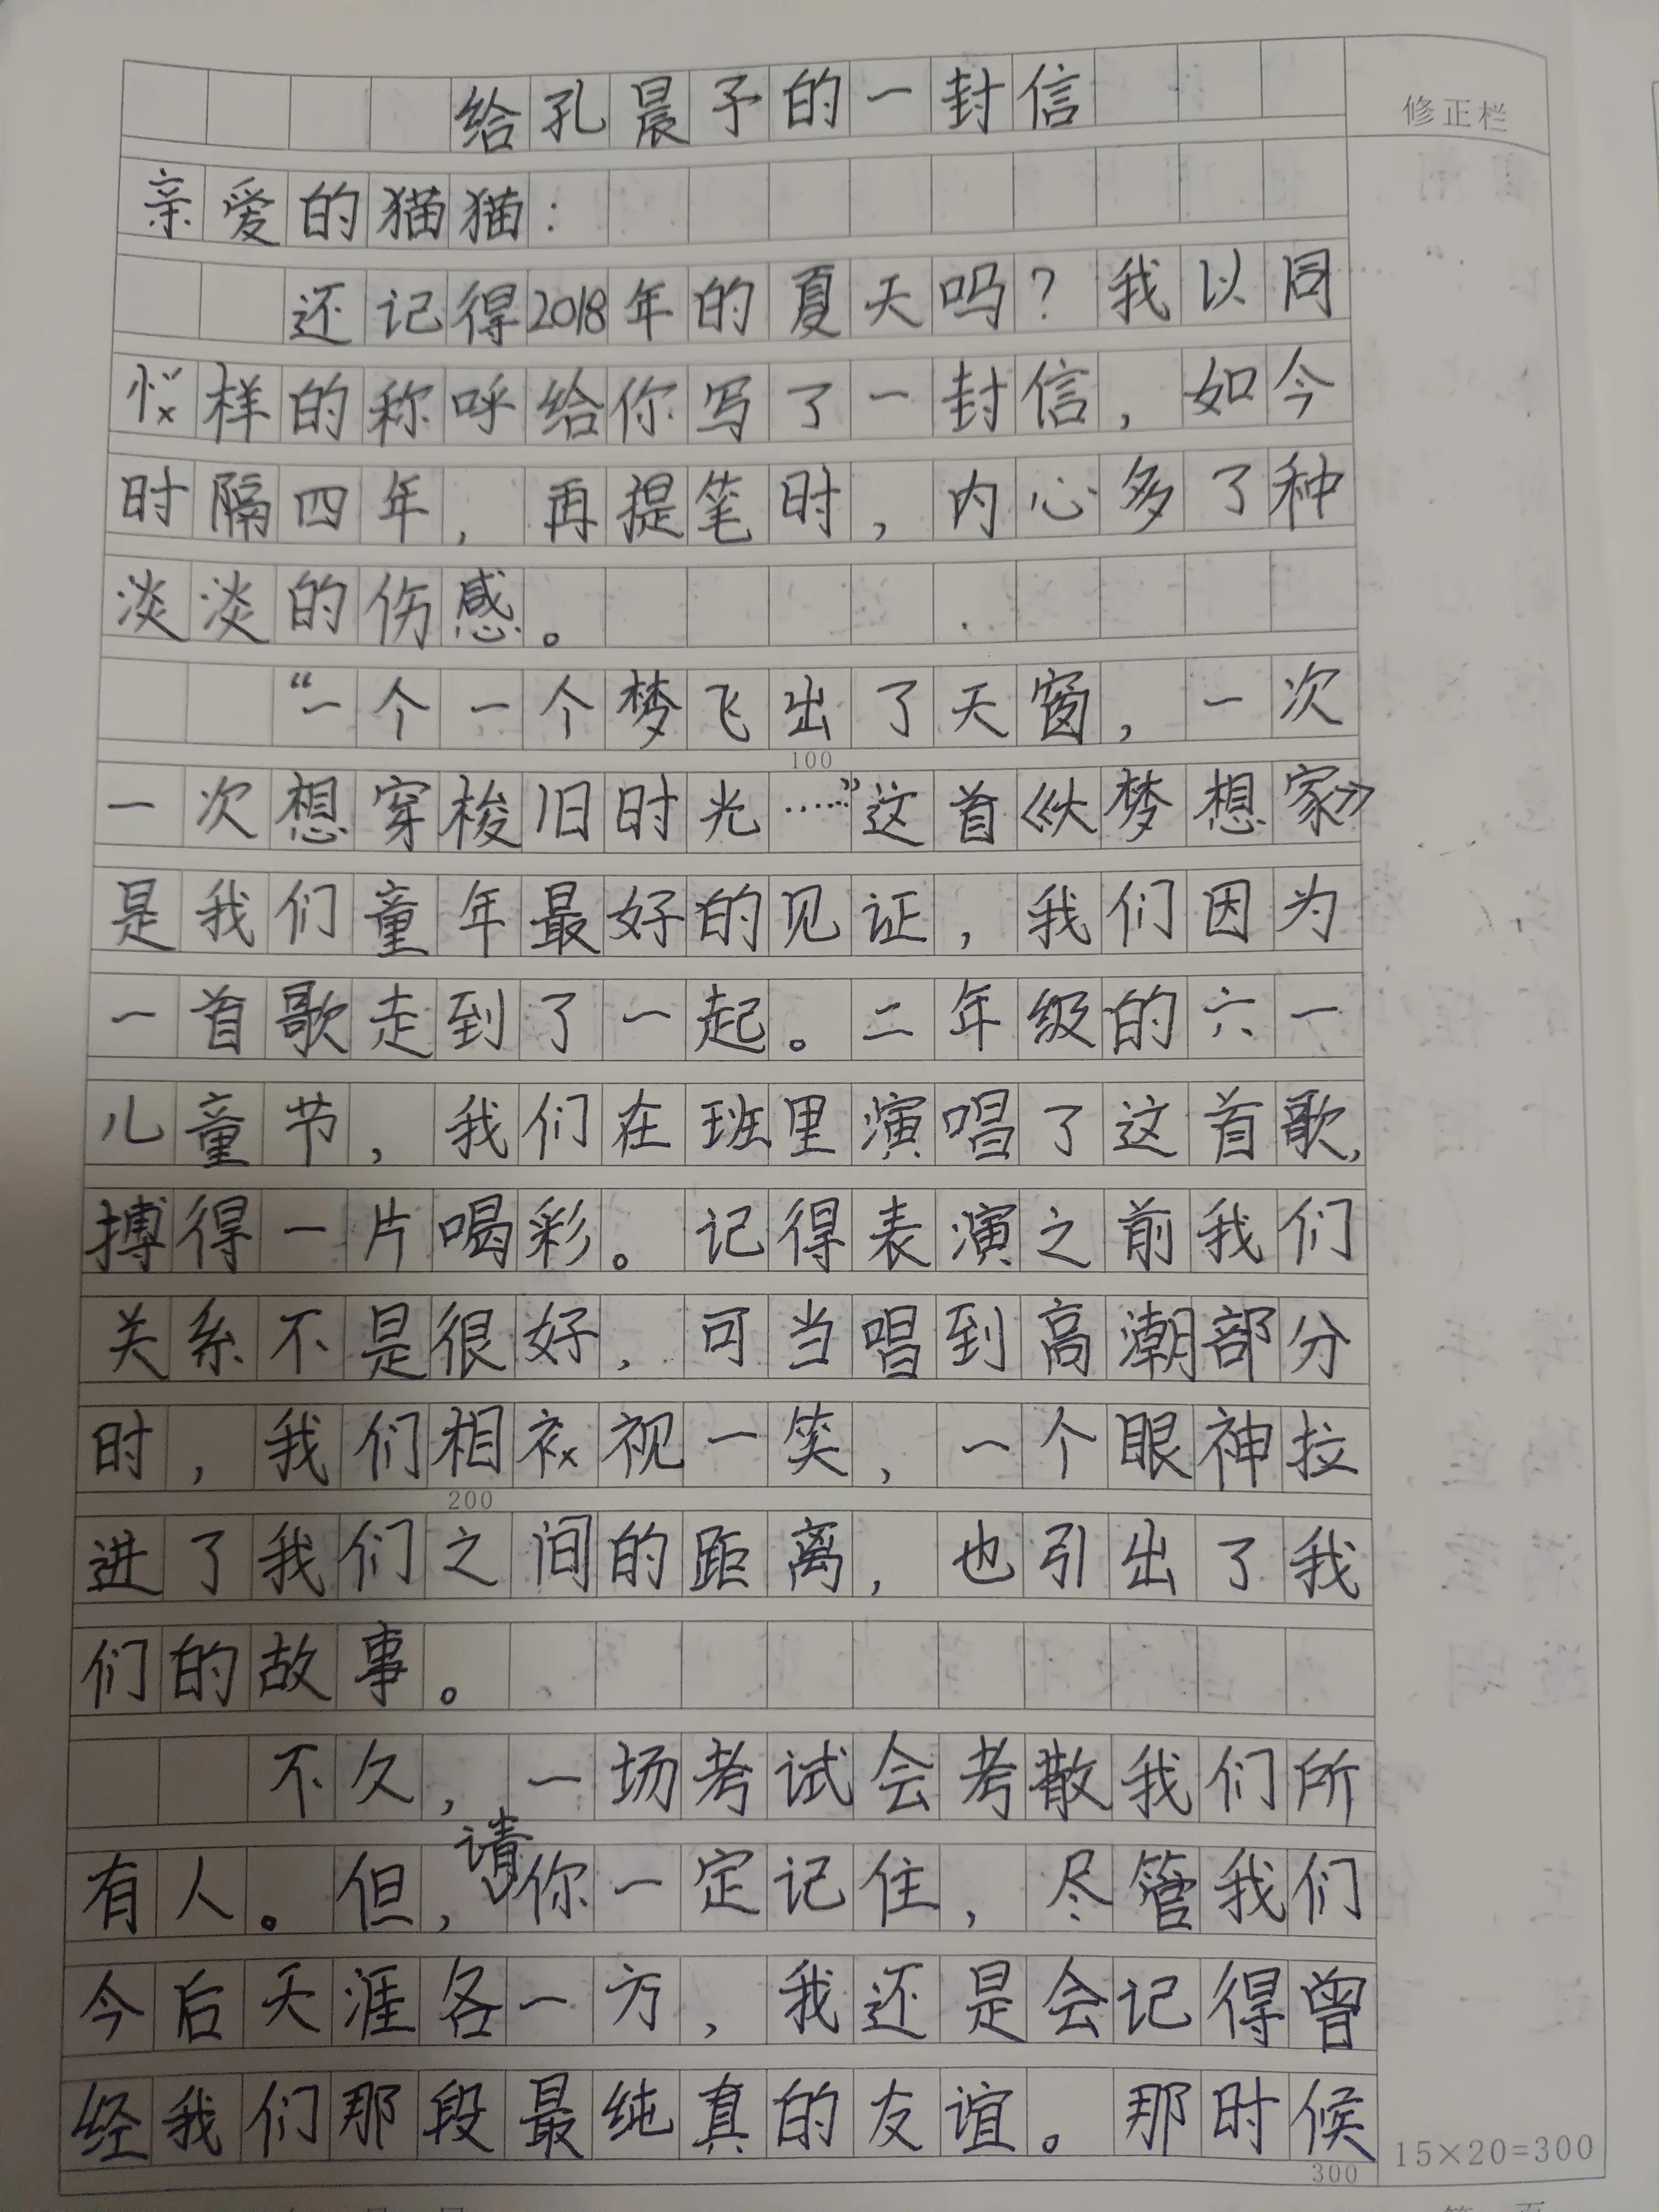 给孔晨予的一封信
修正栏
亲爱的猫猫：
还记得2018年的夏天吗？我以同
样的称呼给你写了一封信，如今
时隔四年，再提笔时，内心多了种
淡淡的伤感。
“一个一个梦飞出了天窗，一次
100
一次想穿梭旧时光……”这首《大梦想家》
是我们童年最好的见证，我们因为
一首歌走到了一起。二年级的六一
儿童节，我们在班里演唱了这首歌，
搏得一片喝彩。记得表演之前我们
关系不是很好，可当唱到高潮部分
时，我们相视一笑，一个眼神拉
200
进了我们之间的距离，也引出了我
们的故事。
不久，一场考试会考散我们所
有人。但，请你一定记住，尽管我们
今后天涯各一方，我还是会记得曾
经我们那段最纯真的友谊。那时候
300
15×20=300